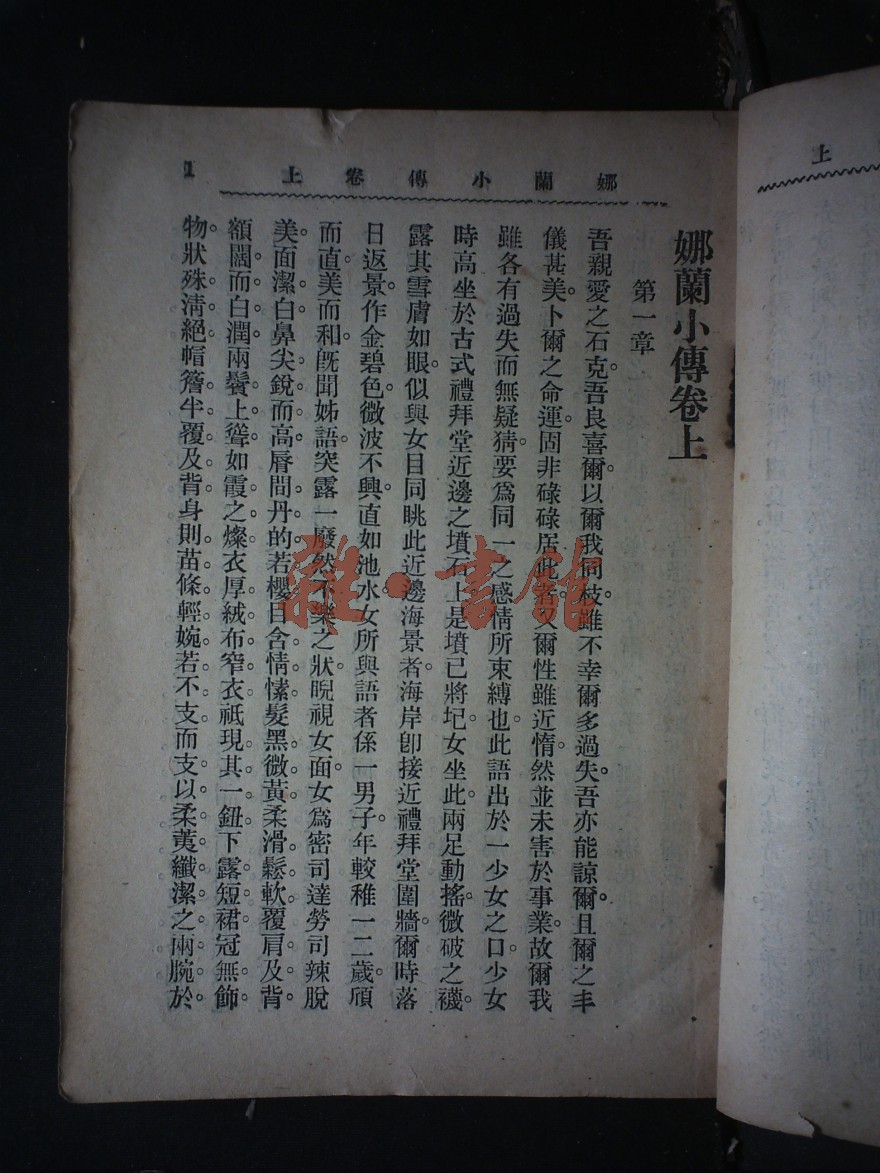 上
娜蘭小傳卷上
1
娜蘭小傳卷上
第一章
吾親愛之石克。吾良喜爾。以爾我同枝。雖不幸爾多過失。吾亦能諒爾。且爾之丰
儀甚美。卜爾之命運。固非碌碌居此者。又爾性雖近惰。然並未害於事業。故爾我
雖各有過失而無疑猜。要爲同一之感情所束縛也。此語出於一少女之口。少女
時高坐於古式禮拜堂近邊之墳石上。是墳已將圮。女坐此。兩足動搖。微破之襪。
露其雪膚如眼。似與女目同眺此近邊海景者。海岸卽接近禮拜堂圍牆。爾時落
日返景。作金碧色。微波不興。直如池水。女所與語者係一男子。年較稚一二歲。頎
而直。美而和。旣聞姊語。突露一廢然不樂之狀。睨視女面。女爲密司達勞司辣脫
美。面潔白。鼻尖銳而高。脣間丹的若櫻。目含情愫。髮黑微黃。柔滑鬆軟。覆肩及背。
額闊而白潤。兩鬢上聳。如霞之燦。衣厚絨布窄衣。祇現其一鈕。下露短裙。冠無飾
物。狀殊淸絕。帽簷半覆及背。身則苗條輕婉。若不支而支。以柔荑纖潔之兩腕。於
雜·書館